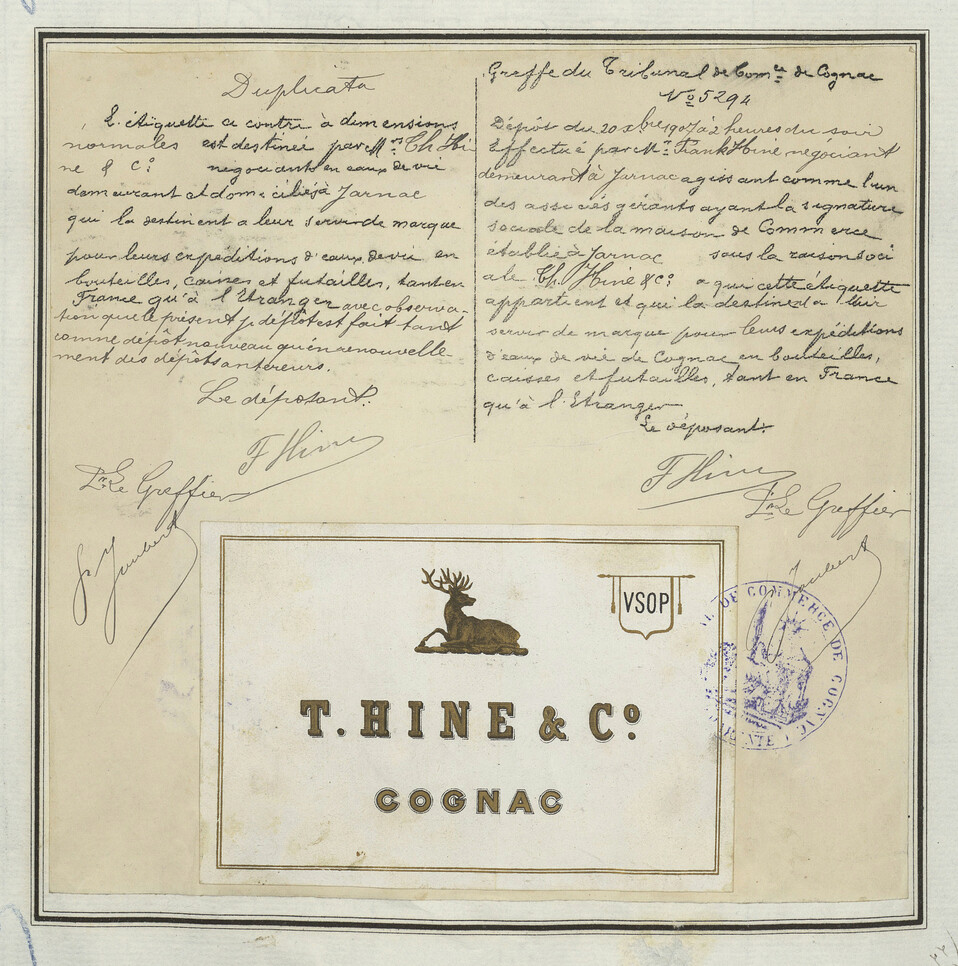 Duplicata
L'étiquette ci contre à dimensions
normales est destinée par Mrs Th Hi
ne & Co négociants en eaux de vie
demeurant et domiciliés à Jarnac
qui la destinent a leur servir de marque
pour leurs expéditions d'eaux de vie en
bouteilles, caisses et futailles, tant en
France qu'à l'Etranger avec observa-
tion que le présent dépôt est fait tant
comme dépôt nouveau qu'en renouvelle
ment des dépôts antéreurs.
Le déposant.
F Hine
Le Greffier
Joubert
Greffe du Tribunal de Comce de Cognac
No 5294
Dépôt du 20 xbre 1907 à 2 heures du soir
Effectué par Mr Frank Hine négociant
demeurant à Jarnac agissant comme l'un
des associés gérants ayant la signature
sociale de la maison de Commerce
établie à Jarnac sous la raison soci
ale Th. Hine & Co a qui cette étiquette
appartient et qui la destinent a leur
servir de marque pour leurs expéditions
d'eaux de vie de Cognac en bouteilles,
caisses et futailles, tant en France
qu'à l'Etranger
Le déposant.
F Hine
Le Greffier
Joubert
VSOP
T. HINE & Co.
COGNAC
DE COMMERCE DE COGNAC